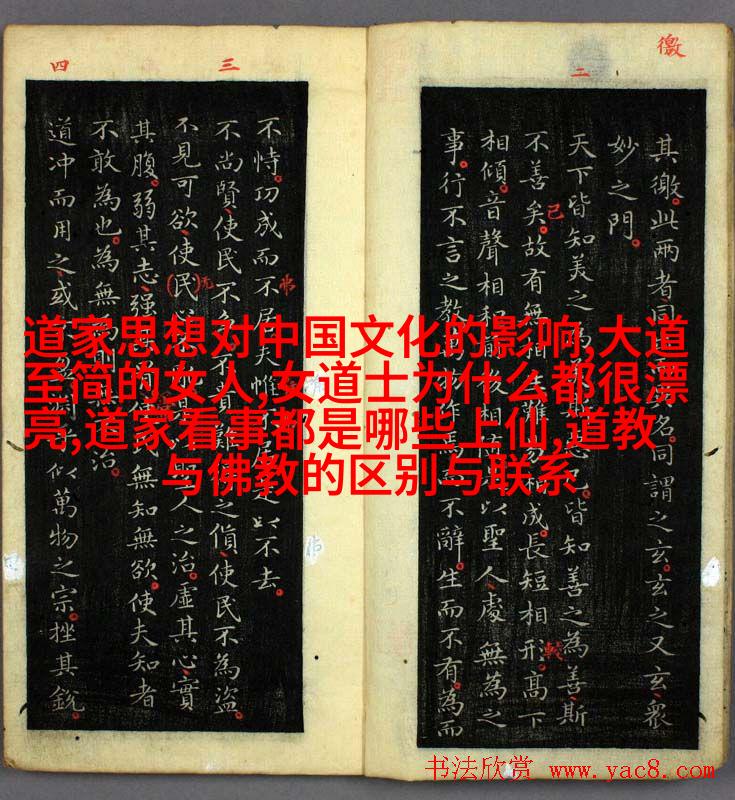 道家思想对中国文化的影响,大道
至简的女人,女道士为什么都很漂
亮,道家看事都是哪些上仙,道教
与佛教的区别与联系
徼
二
其徼。此兩者同名。同謂之玄。玄之又玄、眾
妙之門。
天下皆知美之皆知善之為善斯
不善矣。故有無相成。長短相形。高下
相傾。音聲相以聖人處無為之
事。行不言之教而不辭。生而不有。為而
已
三
四
不恃。功成而不居夫惟不去。
不尚賢、使民不之貨、使民不為盜。
不見可欲、使民人之治。虛其心、實
其腹。弱其志、强使民無知無欲。使夫知者
不敢為也。為無治。
道冲而用之、或萬物之宗。挫其銳。
无
书法欣赏 www.yac8.com